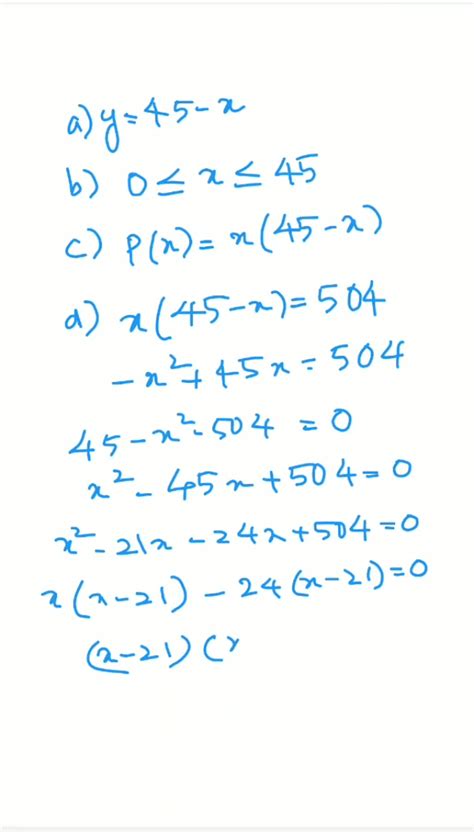 a) y = 45 - x
b) 0 ≤ x ≤ 45
c) P(x) = x(45 - x)
d) x(45 - x) = 504
-x² + 45x = 504
45 - x² - 504 = 0
x² - 45x + 504 = 0
x² - 21x - 24x + 504 = 0
x(x - 21) - 24(x - 21) = 0
(x - 21)(x